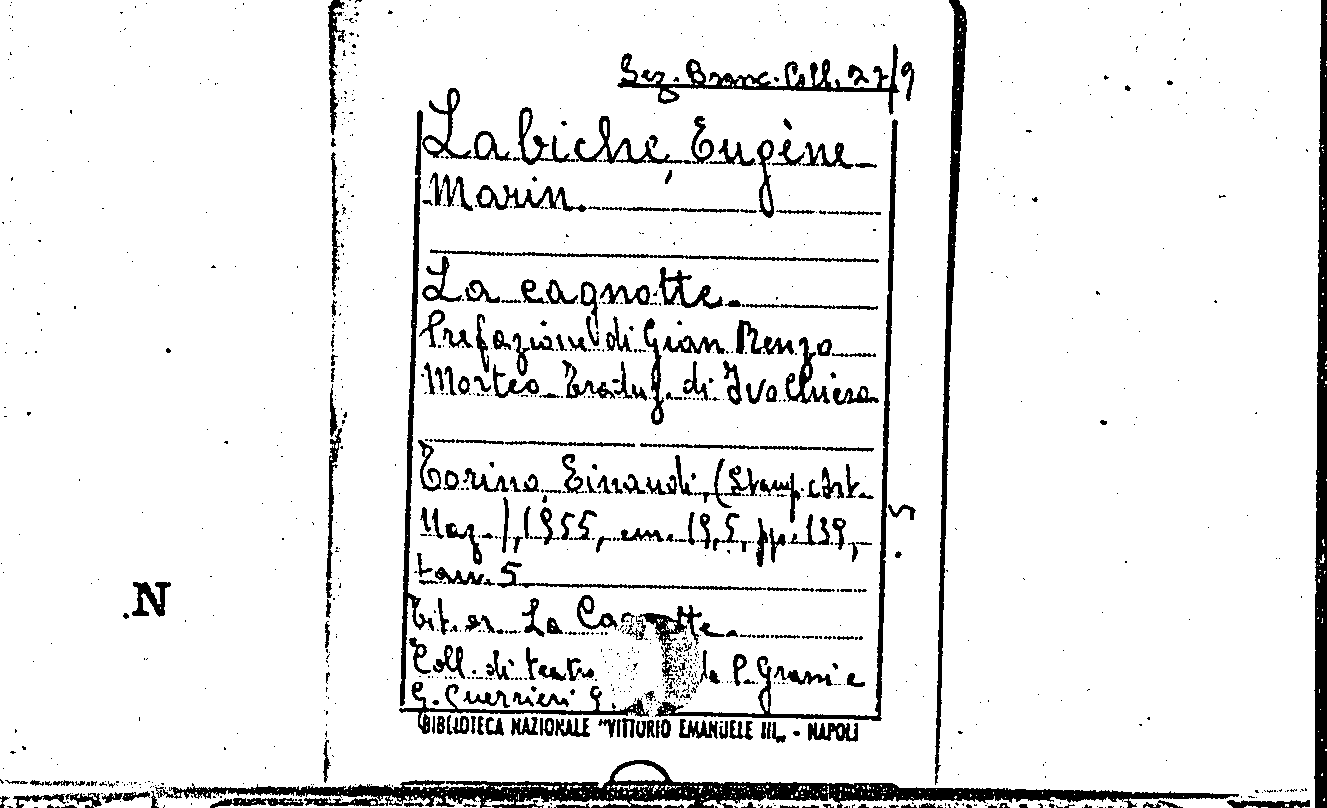 Sez. Branc. Coll. 27/9
Labiche, Eugène
Marin.
La cagnotte.
Prefazione di Gian Renzo
Morteo Traduz. di Ivo Chiesa
Torino, Einaudi, (Stamp. Art.
Naz.), 1955, cm. 19,5, pp. 139,
tav. 5
N
Tit. or. La
Coll. di teatro P. Grassi e
G. Guerrieri 9.
BIBLIOTECA NAZIONALE "VITTORIO EMANUELE III" - NAPOLI